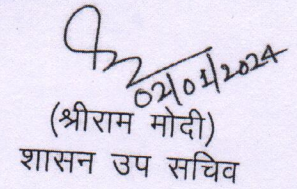 02/01/2024
(श्रीराम मोदी)
शासन उप सचिव